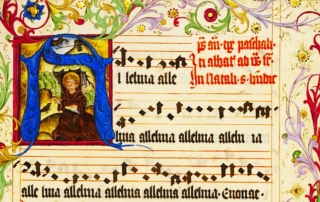 A
ps añ. ex paschali.
In albas ad
In Natali. s.
l leluia alle
luia alleluia alleluia allelu ia
alle luia alleluia alleluia alleluia. Evovae.